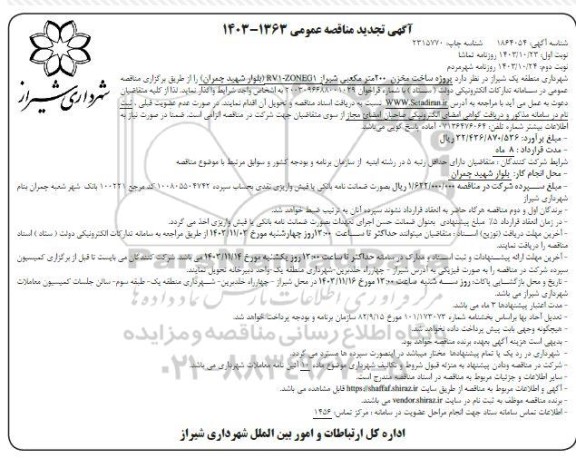 آگهی تجدید مناقصه عمومی ۱۳۶۳-۱۴۰۳
شناسه آگهی: ۱۸۶۴۰۵۴ شناسه چاپ: ۲۳۱۵۷۷۰
نوبت اول: ۱۴۰۳/۱۰/۲۳ روزنامه تماشا
نوبت دوم: ۱۴۰۳/۱۰/۲۴ روزنامه شهرمردم
شهرداری منطقه یک شیراز در نظر دارد پروژه ساخت مخزن ۲۰۰متر مکعبی شیراز: RV1-ZONEG1 (بلوار شهید چمران) را از طریق برگزاری مناقصه
عمومی در سامانه تدارکات الکترونیکی دولت (ستاد) با شماره فراخوان به اشخاص واجد شرایط واگذار نماید. لذا از کلیه متقاضیان
دعوت به عمل می آید با مراجعه به آدرس WWW.Setadiran.ir نسبت به دریافت اسناد مناقصه و تحویل آن اقدام نمایند. در صورت عدم عضویت قبلی ، ثبت
نام در سامانه مذکور و دریافت گواهی امضای الکترونیکی صاحبان امضای مجاز از سوی متقاضیان جهت شرکت در مناقصه الزامی است. ضمنا در صورت نیاز به
اطلاعات بیشتر شماره تلفن: ۰۷۱۳۶۴۷۶۰۶۴ آماده پاسخ گویی می‌باشد.
- مبلغ برآورد: ۳۲/۴۳۶/۸۷۰/۵۳۶ ریال
- مدت قرارداد: ۸ ماه
شرایط شرکت کنندگان : متقاضیان دارای حداقل رتبه ۵ در رشته ابنیه از سازمان برنامه و بودجه کشور و سوابق مرتبط با موضوع مناقصه
- محل انجام کار: بلوار شهید چمران
- مبلغ سپرده شرکت در مناقصه ۱/۶۲۲/۰۰۰/۰۰۰ ریال بصورت ضمانت نامه بانکی یا فیش واریزی نقدی بحساب سپرده ۱۰۰۸۰۵۵۰۴۷۴۲ کد مرجع ۱۰۰۲۲۱ بانک شهر شعبه چمران بنام
شهرداری شیراز
- برندگان اول و دوم مناقصه هرگاه حاضر به انعقاد قرارداد نشوند سپرده آنان به ترتیب ضبط خواهد شد.
- در زمان انعقاد قرارداد ۵٪ مبلغ پیشنهادی بعنوان ضمانت حسن اجرای تعهدات بصورت ضمانت نامه بانکی یا فیش واریزی اخذ می گردد.
- آخرین مهلت دریافت (توزیع) اسناد: متقاضیان میتوانند حداکثر تا ساعت ۱۳:۰۰روز چهارشنبه مورخ ۱۴۰۳/۱۱/۰۳ از طریق مراجعه به سامانه تدارکات الکترونیکی دولت ( ستاد ) اسناد
مناقصه را دریافت نمایند.
- آخرین مهلت ارائه پیشنهادات و ثبت اسناد و مدارک در سامانه حداکثر تا ساعت ۱۳:۰۰ روز یکشنبه مورخ ۱۴۰۳/۱۱/۱۴ می باشد. شرکت کنندگان می بایست تا قبل از برگزاری کمیسیون
سپرده شرکت در مناقصه را به صورت فیزیکی به آدرس شیراز – چهارراه خلدبرین -شهرداری منطقه یک-واحد دبیرخانه تحویل نمایند.
- تاریخ و محل بازگشایی پاکات: روز سه شنبه ساعت ۱۳:۰۰ مورخ ۱۴۰۳/۱۱/۱۶ در محل شیراز - چهارراه خلدبرین- شهرداری منطقه یک- طبقه سوم- سالن جلسات کمیسیون معاملات
شهرداری شیراز می باشد.
- مدت اعتبار پیشنهادها ۳ ماه می باشد.
- تعدیل آحاد بها براساس بخشنامه شماره ۱۰۱/۱۷۳۰۷۳ مورخ ۸۲/۹/۱۵ سازمان برنامه و بودجه پرداخت خواهد شد.
- هیچگونه وجهی بابت پیش پرداخت داده نخواهد شد.
- بدیهی است هزینه آگهی بعهده برنده مناقصه خواهد بود.
- شهرداری در رد یک یا تمام پیشنهادها مختار میباشد در اینصورت سپرده ها مسترد می گردد.
- شرکت در مناقصه ودادن پیشنهاد به منزله قبول شروط و تکالیف شهرداری موضوع ماده ۱۰ آئین نامه معاملات شهرداری می باشد.
- سایر اطلاعات و جزئیات مربوط به مناقصه در اسناد مناقصه مندرج است.
- آگهی و اطلاعات مربوط به مناقصه از طریق سایت https://shaffaf.shiraz.ir قابل مشاهده می باشد.
- برنده مناقصه موظف به ثبت نام در سایت vendor.shiraz.ir می باشند.
- اطلاعات تماس سامانه ستاد جهت انجام مراحل عضویت در سامانه : مرکز تماس: ۱۴۵۶
اداره کل ارتباطات و امور بین الملل شهرداری شیراز
شهرداری شیراز
پایگاه اطلاع رسانی مناقصه و مزایده